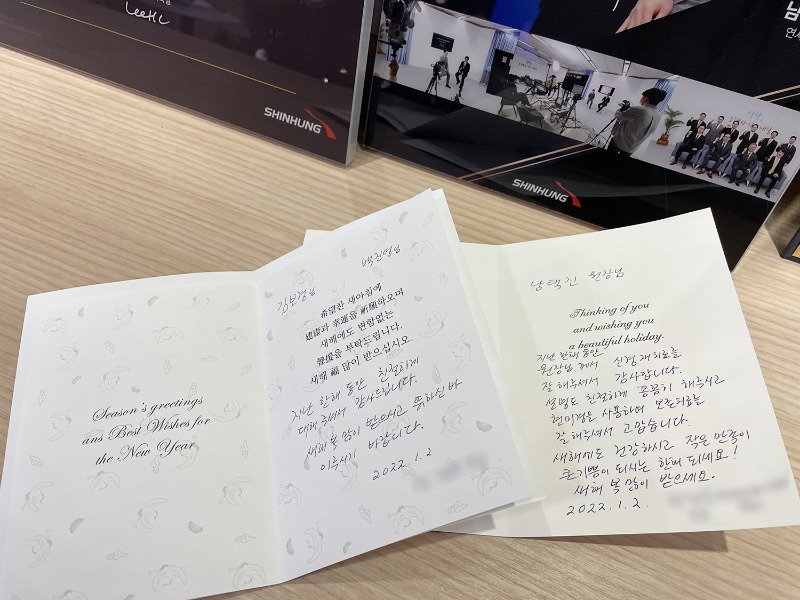 LeeHL
SHINHUNG
남
연세
SHINHUNG
Season's greetings
ans Best Wishes for
the New Year
김보경님
백진영님
希望찬 새아침에
健康과 幸運을 祈願하오며
새해에도 변함없는
聲援을 부탁드립니다.
새해 福 많이 받으십시오
지난 한해 동안 친절하게
대해주셔서 감사드립니다.
새해 복 많이 받으시고 뜻하신 바
이루시기 바랍니다.
2022.1.2
남택진 원장님
Thinking of you
and wishing you
a beautiful holiday.
지난 한해 동안
원장님 께서 신경 재치료를
잘 해주셔서 감사합니다.
설명도 친절하게 꼼꼼히 해주시고
현미경을 사용하여 보존치료를
잘 해주셔서 고맙습니다.
새해에도 건강하시고 작은 만족이
큰기쁨이 되시는 한해 되세요!
새해 복 많이 받으세요.
2022.1.2.